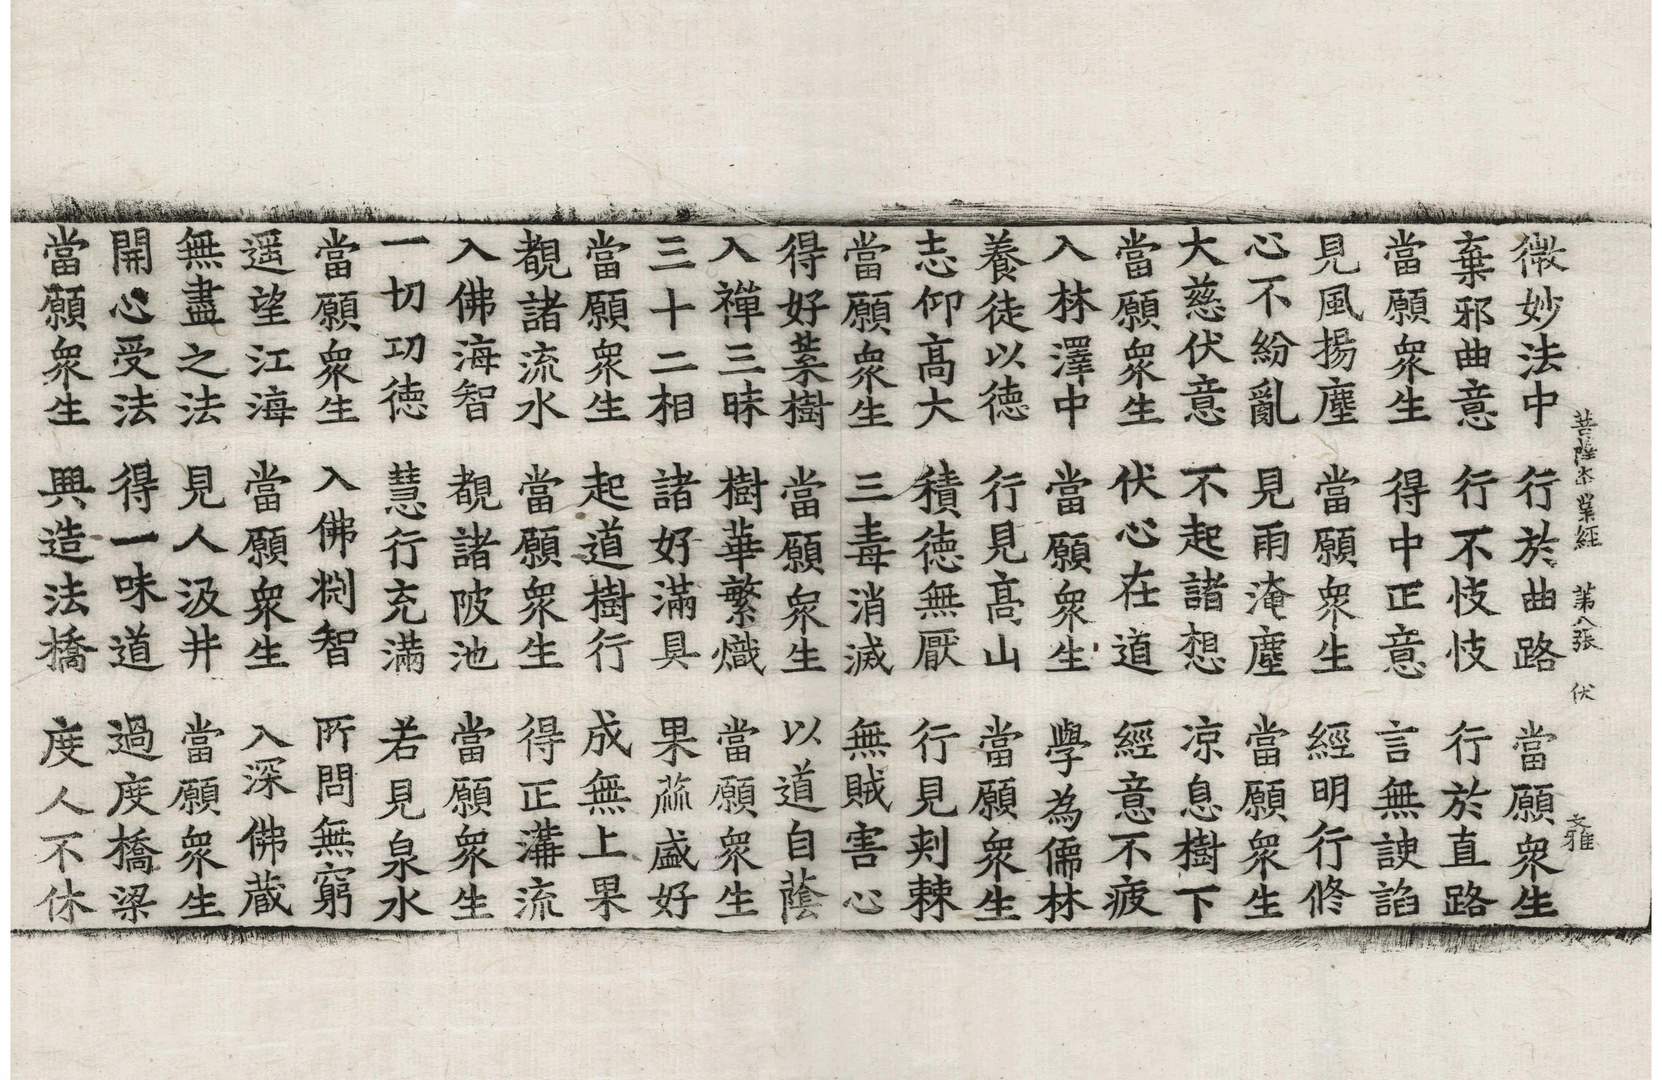 菩薩本業經 第八張 伏 文雅
微妙法中 行於曲路 當願衆生
棄邪曲意 行不忮忮 行於直路
當願衆生 得中正意 言無諛諂
見風揚塵 當願衆生 經明行修
心不紛亂 見雨淹塵 當願衆生
大慈伏意 不起諸想 凉息樹下
當願衆生 伏心在道 經意不疲
入林澤中 當願衆生 學為儒林
養徒以德 行見高山 當願衆生
志仰高大 積德無厭 行見刺棘
當願衆生 三毒消滅 無賊害心
得好葉樹 當願衆生 以道自蔭
入禪三昧 樹華繁熾 當願衆生
三十二相 諸好滿具 果蓏盛好
當願衆生 起道樹行 成無上果
覩諸流水 當願衆生 得正溝流
入佛海智 覩諸陂池 當願衆生
一切功德 慧行充滿 若見泉水
當願衆生 入佛渕智 所問無窮
遥望江海 當願衆生 入深佛藏
無盡之法 見人汲井 當願衆生
開心受法 得一味道 過度橋梁
當願衆生 興造法橋 度人不休